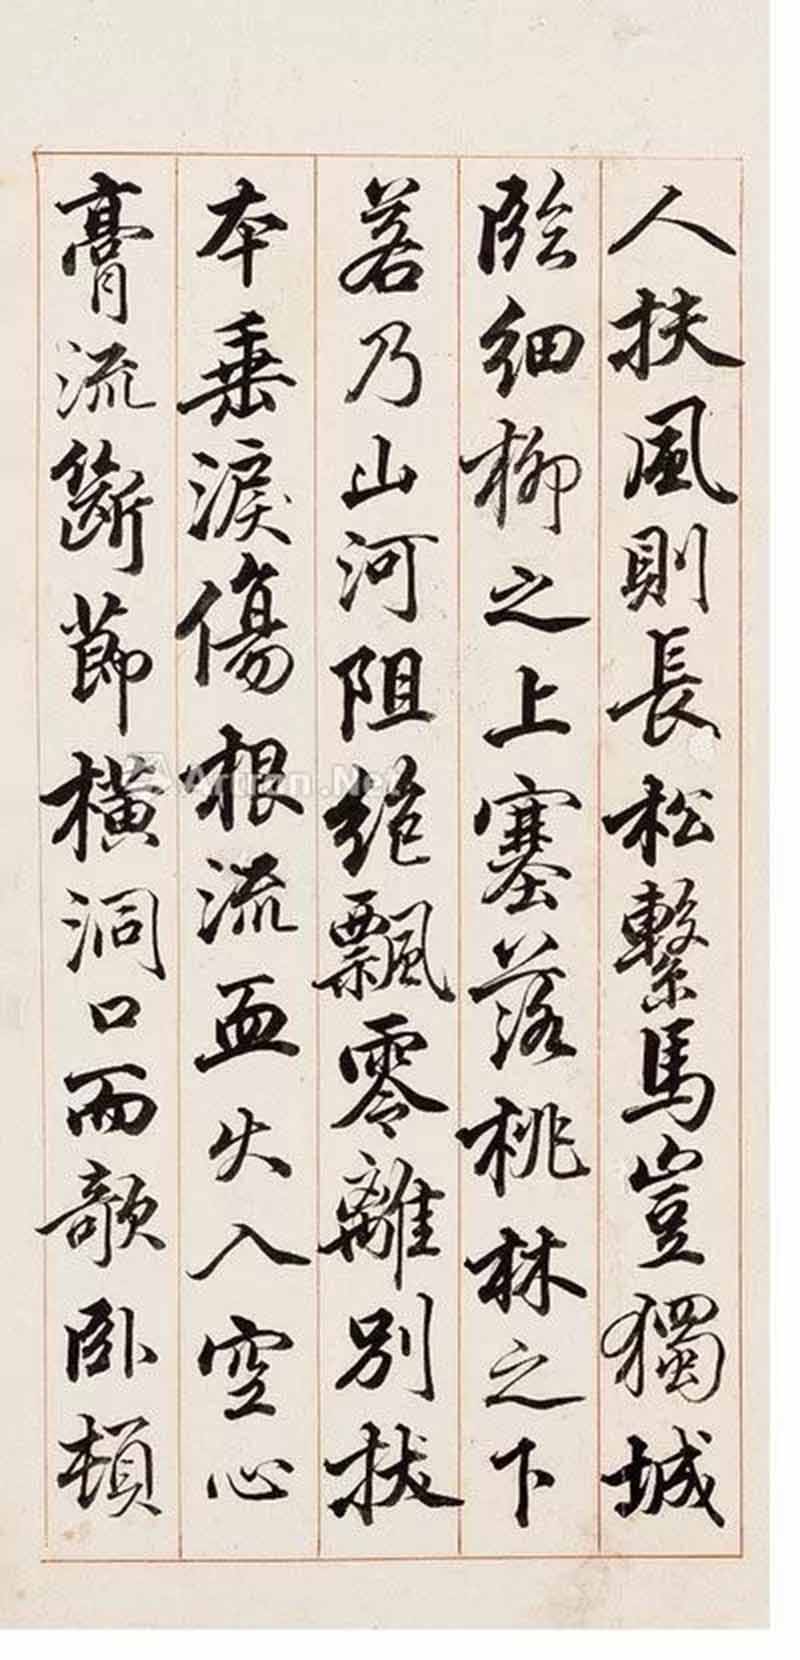 人扶風則長松繫馬豈獨城
臨細柳之上塞落桃林之下
若乃山河阻絶飄零離別拔
本垂淚傷根流血火入空心
膏流斷節橫洞口而欹卧頓
Artron.Net